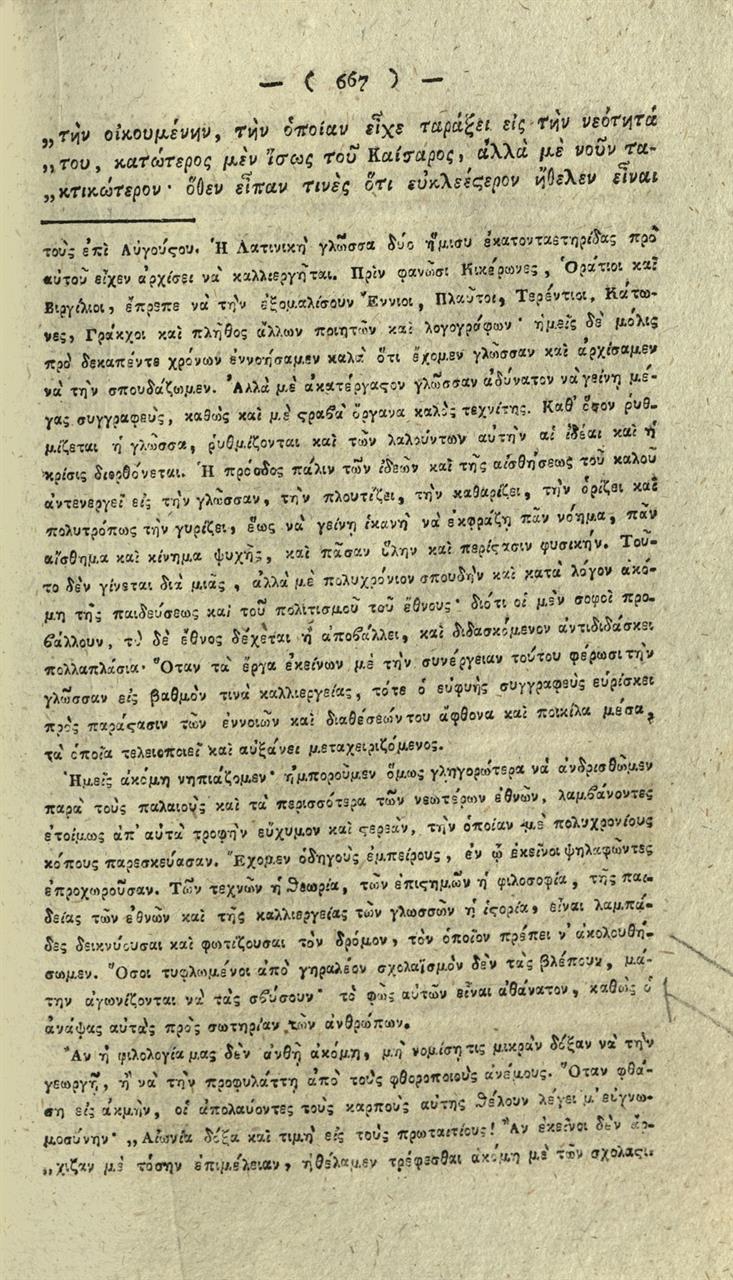 — ( 667 ) —
„την οἰκουμένην, τὴν ὁποίαν εἶχε ταράξει εἰς τὴν νεότητά
„του, κατώτερος μὲν ἴσως τοῦ Καίσαρος, ἀλλὰ μὲ νοῦν τα-
„κτικώτερον· ὅθεν εἶπαν τινὲς ὅτι εὐκλεέϛερον ἤθελεν εἶναι
τοὺς ἐπὶ Αὐγούϛου. Ἡ Λατινικὴ γλῶσσα δύο ἥμισυ ἑκατονταετηρίδας πρὸ
αὐτοῦ εἶχεν ἀρχίσει νὰ καλλιεργῆται. Πρὶν φανῶσι Κικέρωνες, Ὁράτιοι καὶ
Βιργίλιοι, ἔπρεπε νὰ τὴν ἐξομαλίσουν Ἔννιοι, Πλαῦτοι, Τερέντιοι, Κάτω-
νες, Γράκχοι καὶ πλῆθος ἄλλων ποιητῶν καὶ λογογράφων· ἡμεῖς δὲ μόλις
πρὸ δεκαπέντε χρόνων ἐννοήσαμεν καλὰ ὅτι ἔχομεν γλῶσσαν καὶ ἀρχίσαμεν
νὰ τὴν σπουδάζωμεν. Ἀλλὰ μὲ ἀκατέργαϛον γλῶσσαν ἀδύνατον νὰ γείνῃ μέ-
γας συγγραφεὺς, καθὼς καὶ μὲ ϛραβὰ ὄργανα καλὸς τεχνίτης. Καθ' ὅσον ῥυθ-
μίζεται ἡ γλῶσσα, ῥυθμίζονται καὶ τῶν λαλούντων αὐτὴν αἱ ἰδέαι καὶ ἡ
κρίσις διορθόνεται. Ἡ πρόοδος πάλιν τῶν ἰδεῶν καὶ τῆς αἰσθήσεως τοῦ καλοῦ
ἀντενεργεῖ εἰς τὴν γλῶσσαν, τὴν πλουτίζει, τὴν καθαρίζει, τὴν ὁρίζει καὶ
πολυτρόπως τὴν γυρίζει, ἕως νὰ γείνῃ ἱκανὴ νὰ ἐκφράζῃ πᾶν νόημα, πᾶν
αἴσθημα καὶ κίνημα ψυχῆς, καὶ πᾶσαν ὕλην καὶ περίϛασιν φυσικήν. Τοῦ-
το δὲν γίνεται διὰ μιᾶς, ἀλλὰ μὲ πολυχρόνιον σπουδὴν καὶ κατὰ λόγον ἀκό-
μη τῆς παιδεύσεως καὶ τοῦ πολιτισμοῦ τοῦ ἔθνους· διότι οἱ μὲν σοφοὶ προ-
βάλλουν, τὸ δὲ ἔθνος δέχεται ἢ ἀποβάλλει, καὶ διδασκόμενον ἀντιδιδάσκει
πολλαπλάσια· Ὅταν τὰ ἔργα ἐκείνων μὲ τὴν συνέργειαν τούτου φέρωσι τὴν
γλῶσσαν εἰς βαθμὸν τινὰ καλλιεργείας, τότε ὁ εὐφυὴς συγγραφεὺς εὑρίσκει
πρὸς παράϛασιν τῶν ἐννοιῶν καὶ διαθέσεών του ἄφθονα καὶ ποικίλα μέσα,
τὰ ὁποῖα τελειοποιεῖ καὶ αὐξάνει μεταχειριζόμενος.
Ἡμεῖς ἀκόμη νηπιάζομεν· ἠμποροῦμεν ὅμως γληγορώτερα νὰ ἀνδρισθῶμεν
παρὰ τοὺς παλαιοὺς καὶ τὰ περισσότερα τῶν νεωτέρων ἐθνῶν, λαμβάνοντες
ἑτοίμως ἀπ' αὐτὰ τροφὴν εὔχυμον καὶ ϛερεὰν, τὴν ὁποίαν μὲ πολυχρονίους
κόπους παρεσκεύασαν. Ἔχομεν ὁδηγοὺς ἐμπείρους, ἐν ᾧ ἐκεῖνοι ψηλαφῶντες
ἐπροχωροῦσαν. Τῶν τεχνῶν ἡ θεωρία, τῶν ἐπιϛημῶν ἡ φιλοσοφία, τῆς παι-
δείας τῶν ἐθνῶν καὶ τῆς καλλιεργείας τῶν γλωσσῶν ἡ ἱϛορία, εἶναι λαμπά-
δες δεικνύουσαι καὶ φωτίζουσαι τὸν δρόμον, τὸν ὁποῖον πρέπει ν' ἀκολουθή-
σωμεν. Ὅσοι τυφλωμένοι ἀπὸ γηραλέον σχολαϊσμὸν δὲν τὰς βλέπουν, μά-
την ἀγωνίζονται νὰ τὰς σβύσουν· τὸ φῶς αὐτῶν εἶναι ἀθάνατον, καθὼς ὁ
ἀνάψας αὐτὰς πρὸς σωτηρίαν τῶν ἀνθρώπων.
Ἂν ἡ φιλολογία μας δὲν ἀνθῇ ἀκόμη, μὴ νομίσῃ τις μικρὰν δόξαν νὰ τὴν
γεωργῇ, ἢ νὰ τὴν προφυλάττῃ ἀπὸ τοὺς φθοροποιοὺς ἀνέμους. Ὅταν φθά-
σῃ εἰς ἀκμὴν, οἱ ἀπολαύοντες τοὺς καρποὺς αὐτῆς θέλουν λέγει μ' εὐγνω-
μοσύνην· „Αἰωνία δόξα καὶ τιμὴ εἰς τοὺς πρωταιτίους! Ἂν ἐκεῖνοι δὲν ἄρ-
„χιζαν μὲ τόσην ἐπιμέλειαν, ἠθέλαμεν τρέφεσθαι ἀκόμη μὲ τῶν σχολαϛι-